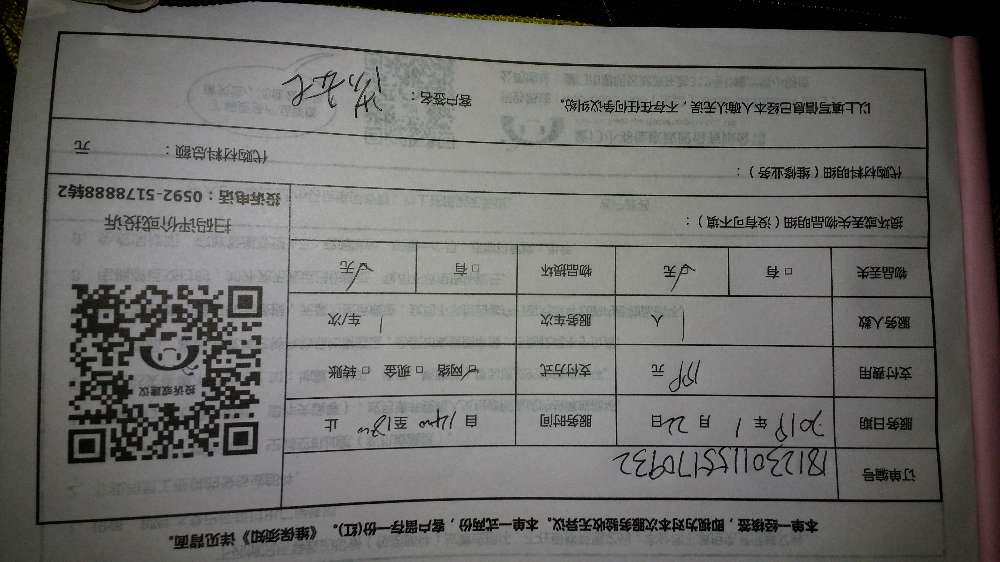 本单一经核签，即视为对本次服务验收无异议。本单一式两份，客户留存一份(红)。《维保须知》详见背面。
订单编号 1812301155170932
服务日期 2019 年 1 月 22 日 服务时间 自 14:00 至 18:00 止
支付费用 元 支付方式 ☑网络 □现金 □转账
服务人数 1 人 服务车次 1 车/次
物品丢失 □有 ☑无 物品损坏 □有 ☑无
损坏或丢失物品明细（没有可不填）：
投诉或建议
扫码评价或投诉
投诉电话：0592-5178888转2
代购材料明细（维修业务）：
代购材料总额： 元
以上填写信息已经本人确认无误，不存在任何争议纠纷。 客户签名：